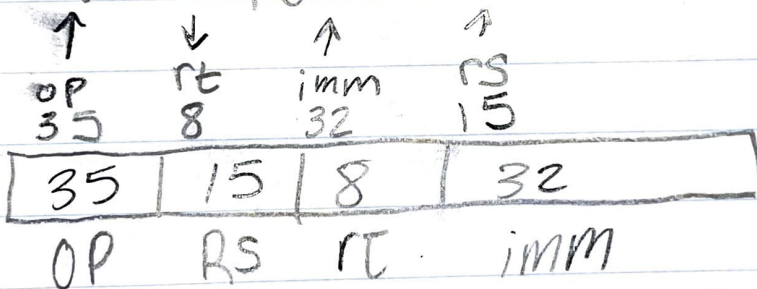 op rt imm rs
35 8 32 15
35 15 8 32
OP RS rt imm